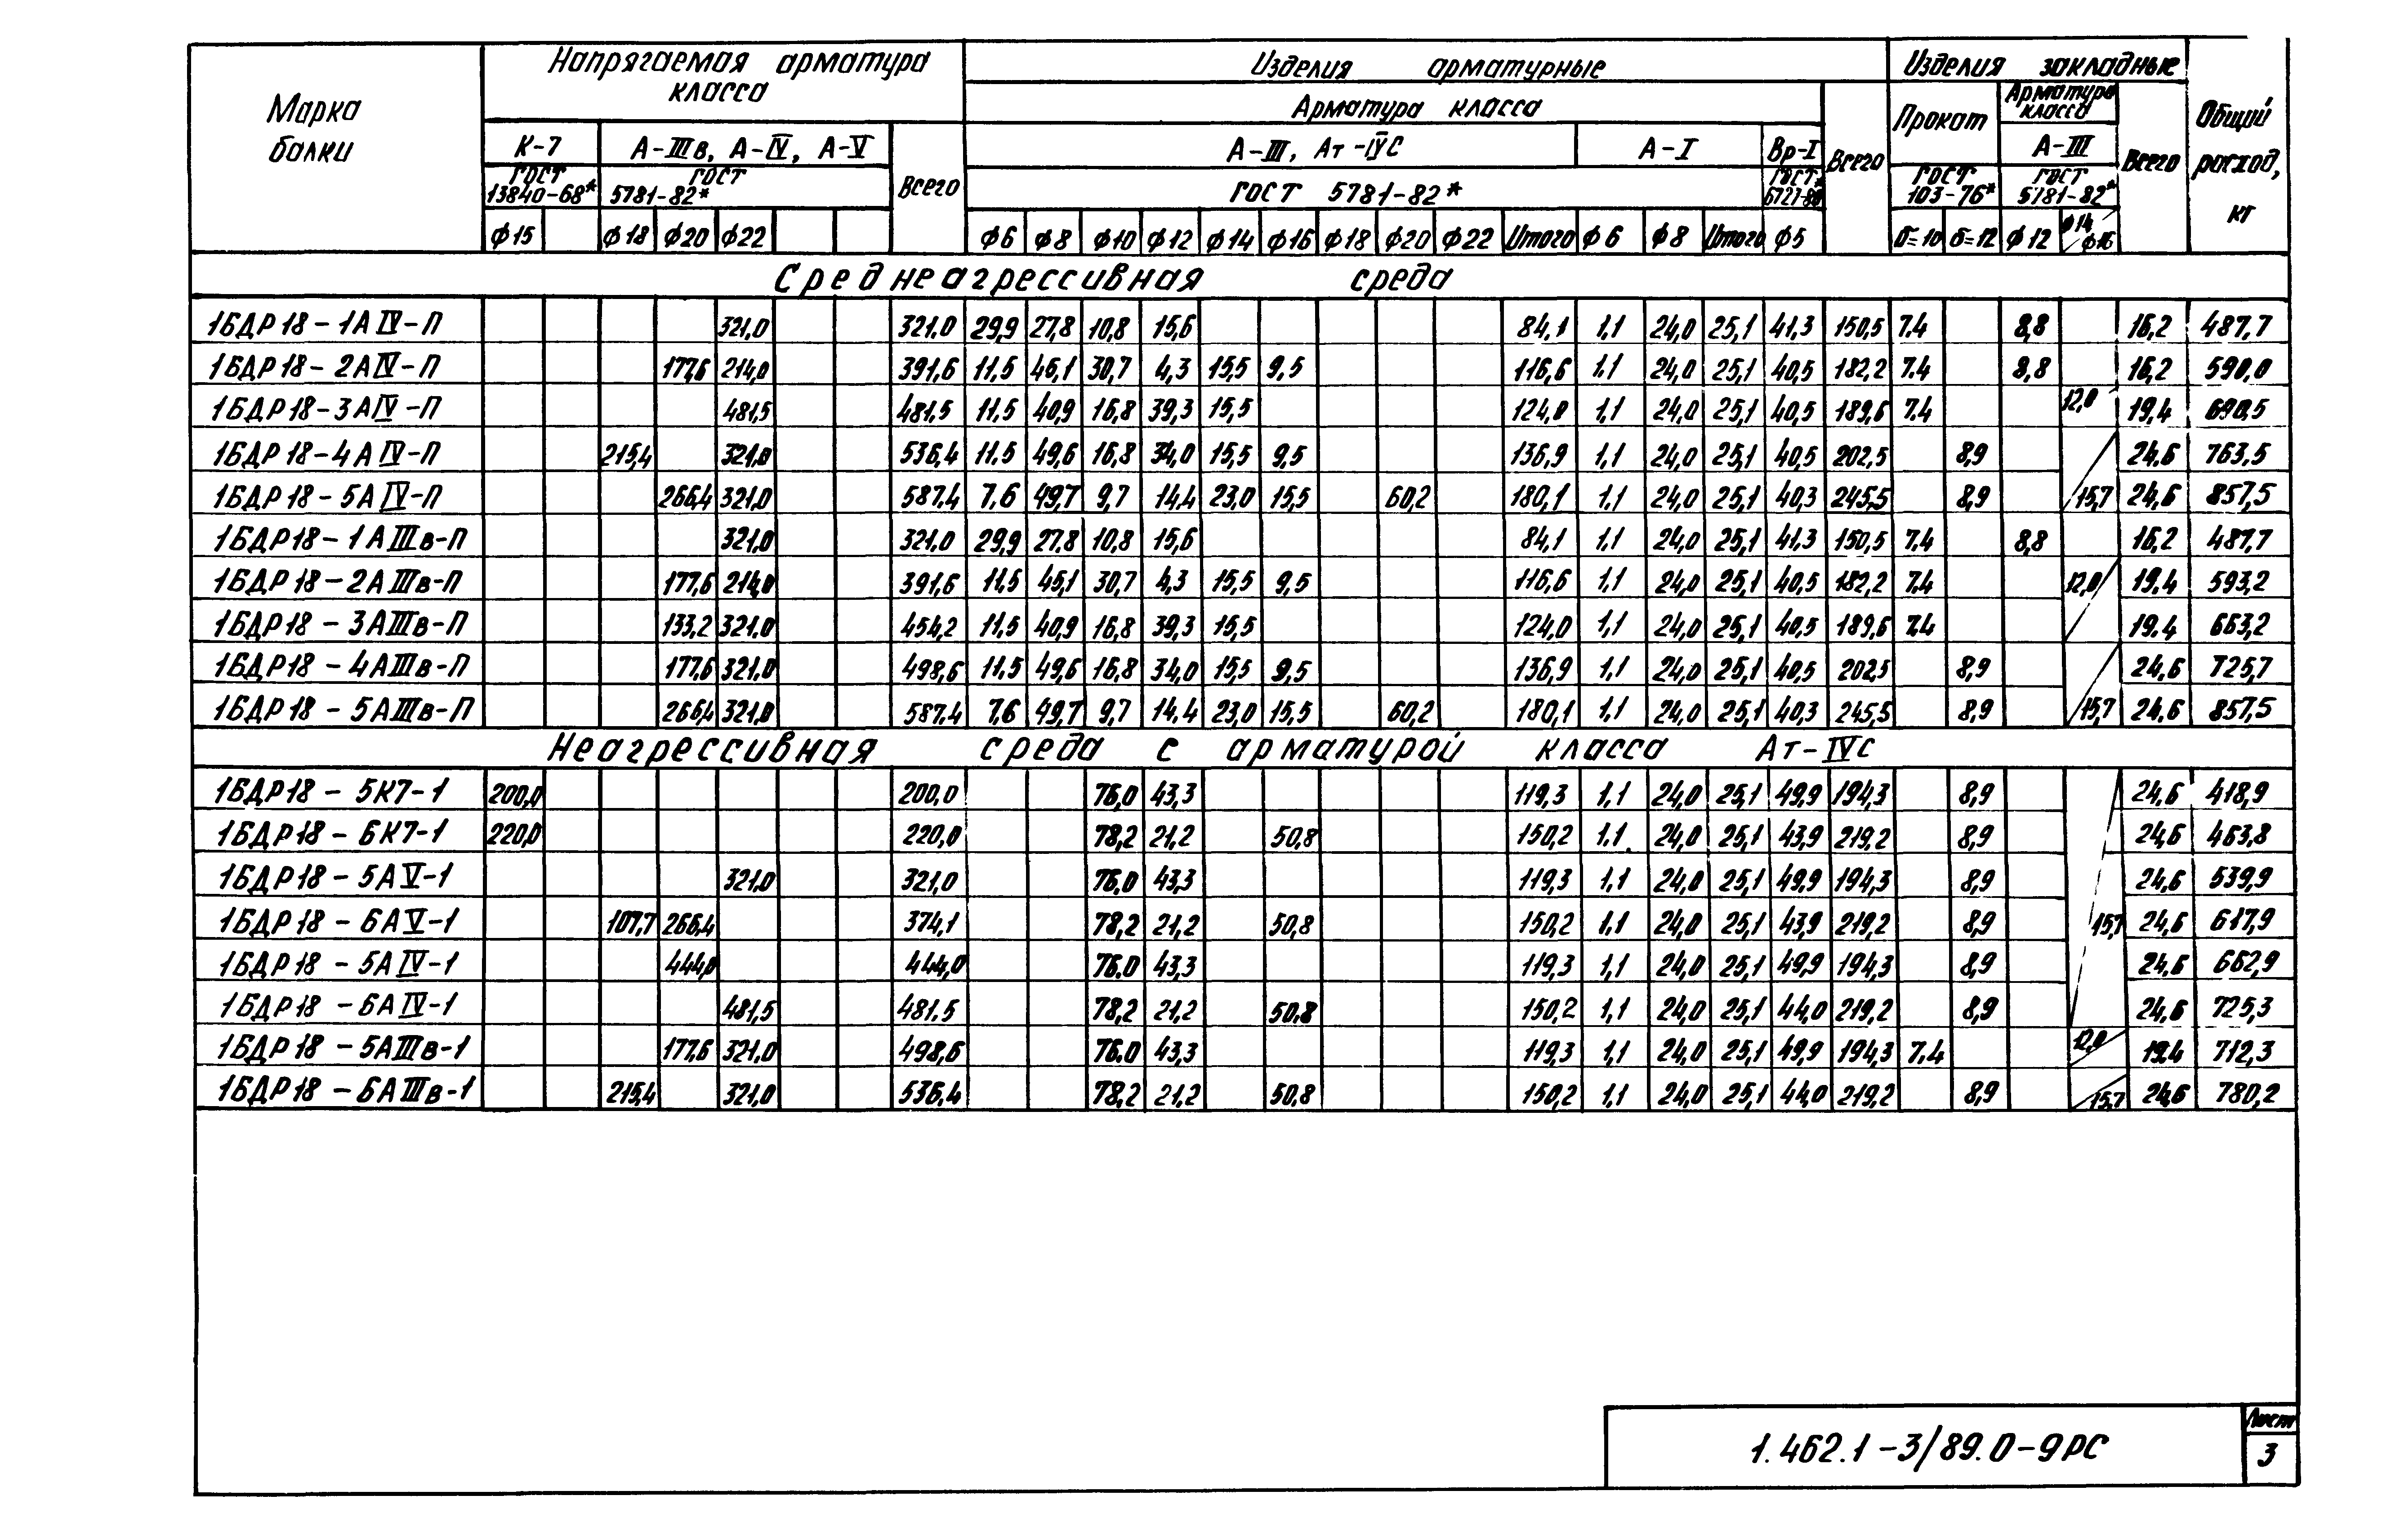 Марка балки
Напрягаемая арматура класса
Изделия арматурные
Изделия закладные
Общий расход, кг
Арматура класса
Прокат
Арматура класса
К-7
А-IIIв, А-IV, А-V
Всего
А-III, Ат-IVС
А-I
Вр-I
Всего
А-III
Всего
ГОСТ 13840-68*
ГОСТ 5781-82*
ГОСТ 5781-82*
ГОСТ 6727-80*
ГОСТ 103-76*
ГОСТ 5781-82*
ϕ15 ϕ18 ϕ20 ϕ22 ϕ6 ϕ8 ϕ10 ϕ12 ϕ14 ϕ16 ϕ18 ϕ20 ϕ22 Итого ϕ6 ϕ8 Итого ϕ5 δ=10 δ=12 ϕ12 ϕ14/ϕ16
Среднеагрессивная среда
1БДР18-1АIV-П 321,0 321,0 29,9 27,8 10,8 15,6 84,1 1,1 24,0 25,1 41,3 150,5 7.4 8,8 16,2 487,7
1БДР18-2АIV-П 177,6 214,0 391,6 11,5 45,1 30,7 4,3 15,5 9,5 116,6 1,1 24,0 25,1 40,5 182,2 7.4 8,8 16,2 590,0
1БДР18-3АIV-П 481,5 481,5 11,5 40,9 16,8 39,3 15,5 124,0 1,1 24,0 25,1 40,5 189,6 7.4 12,0 19,4 690,5
1БДР18-4АIV-П 215,4 321,0 536,4 11,5 49,6 16,8 34,0 15,5 9,5 136,9 1,1 24,0 25,1 40,5 202,5 8,9 24,6 763,5
1БДР18-5АIV-П 266,4 321,0 587,4 7,6 49,7 9,7 14,4 23,0 15,5 60,2 180,1 1,1 24,0 25,1 40,3 245,5 8,9 15,7 24,6 857,5
1БДР18-1АIIIв-П 321,0 321,0 29,9 27,8 10,8 15,6 84,1 1,1 24,0 25,1 41,3 150,5 7,4 8,8 16,2 487,7
1БДР18-2АIIIв-П 177,6 214,0 391,6 11,5 45,1 30,7 4,3 15,5 9,5 116,6 1,1 24,0 25,1 40,5 182,2 7,4 12,0 19,4 593,2
1БДР18-3АIIIв-П 133,2 321,0 454,2 11,5 40,9 16,8 39,3 15,5 124,0 1,1 24,0 25,1 40,5 189,6 7,4 19.4 663,2
1БДР18-4АIIIв-П 177,6 321,0 498,6 11,5 49,6 16,8 34,0 15,5 9,5 136,9 1,1 24,0 25,1 40,5 202,5 8,9 24,6 725,7
1БДР18-5АIIIв-П 266,4 321,0 587.4 7,6 49,7 9,7 14,4 23,0 15,5 60,2 180,1 1,1 24,0 25,1 40,3 245,5 8,9 15,7 24,6 857,5
Неагрессивная среда с арматурой класса Ат-IVС
1БДР18-5К7-1 200,0 200,0 76,0 43,3 119,3 1,1 24,0 25,1 49,9 194,3 8,9 24,6 418,9
1БДР18-6К7-1 220,0 220,0 78,2 21,2 50,8 150,2 1,1 24,0 25,1 43,9 219,2 8,9 24,6 463,8
1БДР18-5АV-1 321,0 321,0 76,0 43,3 119,3 1,1 24,0 25,1 49,9 194,3 8,9 24,6 539,9
1БДР18-6АV-1 107,7 266,4 374,1 78,2 21,2 50,8 150,2 1,1 24,0 25,1 43,9 219,2 8,9 15,7 24,6 617,9
1БДР18-5АIV-1 444,0 444,0 76,0 43,3 119,3 1,1 24,0 25,1 49,9 194,3 8,9 24,6 662,9
1БДР18-6АIV-1 481,5 481,5 78,2 21,2 50,8 150,2 1,1 24,0 25,1 44,0 219,2 8,9 24,6 725,3
1БДР18-5АIIIв-1 177,6 321,0 498,6 76,0 43,3 119,3 1,1 24,0 25,1 49,9 194,3 7,4 12,0 19,4 712,3
1БДР18-6АIIIв-1 215,4 321,0 536,4 78,2 21,2 50,8 150,2 1,1 24,0 25,1 44,0 219,2 8,9 15,7 24,6 780,2
1.462.1-3/89.0-9РС
Лист
3